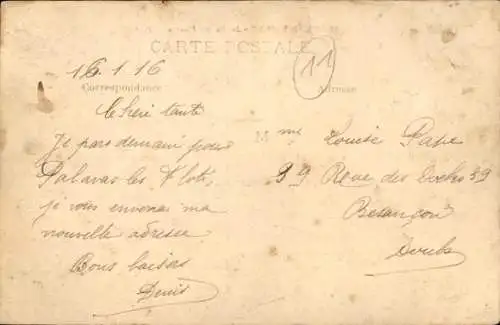 CARTE POSTALE
11
16.1.16
Correspondance
Adresse
chère tante
Je pars demain pour
Palavas les Flots,
je vous enverrai ma
nouvelle adresse
Bons baisers
Denis
Mme Louise Pape
39 Rue des Docks 39
Besançon
Doubs